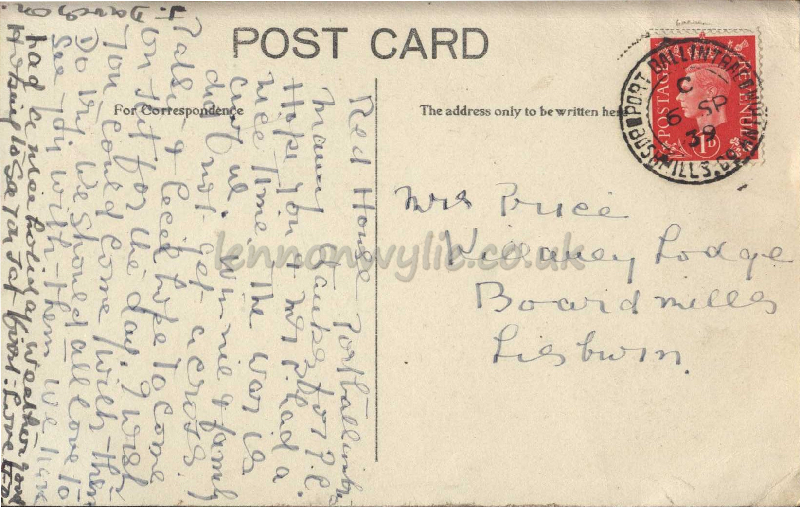 POST CARD
For Correspondence
The address only to be written here
Red House Portballintrae
Many thanks for P.C.
Hope you & Mr P. had a
nice time. The War is
dreadful. Winnie & family
did not get across.
Ralph & Cecil hope to come
on Sat for the day. I wish
you could come with them
Do try. We should all love to
See you with them We have
had a nice holiday weather good
Hoping to See you Sat first. Love
J. Davison
Mrs Price
Killaney Lodge
Boardmills
Lisburn.
PORT BALLINTRAE BUSHMILLS. CO.
C
6 SP
39
POSTAGE
REVENUE
1D
lennonwylie.co.uk